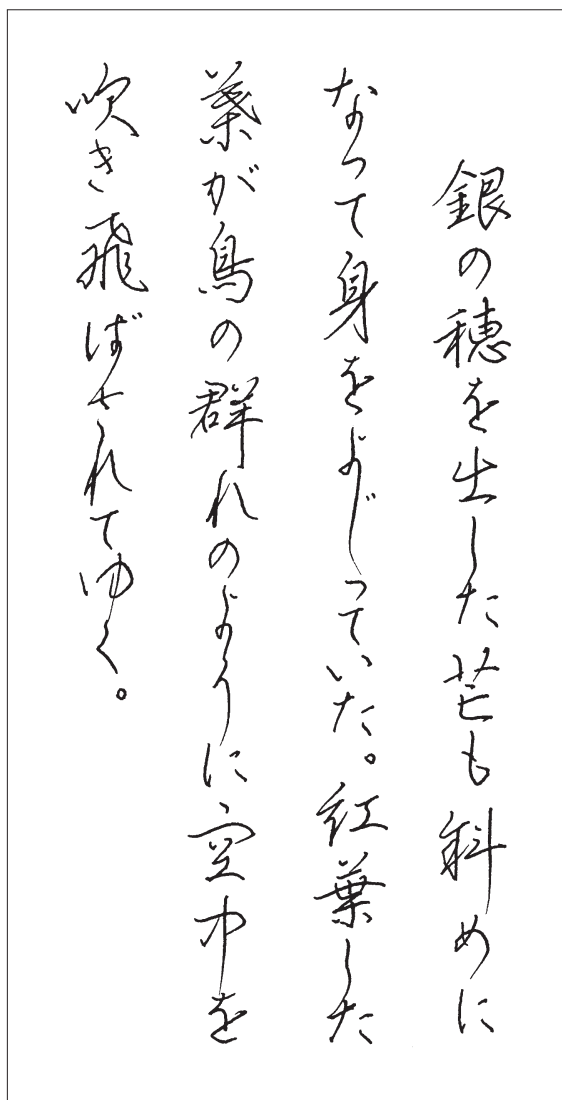 銀の穂を出した芒も斜めに
なって身をよじっていた。紅葉した
葉が鳥の群れのように空中を
吹き飛ばされてゆく。